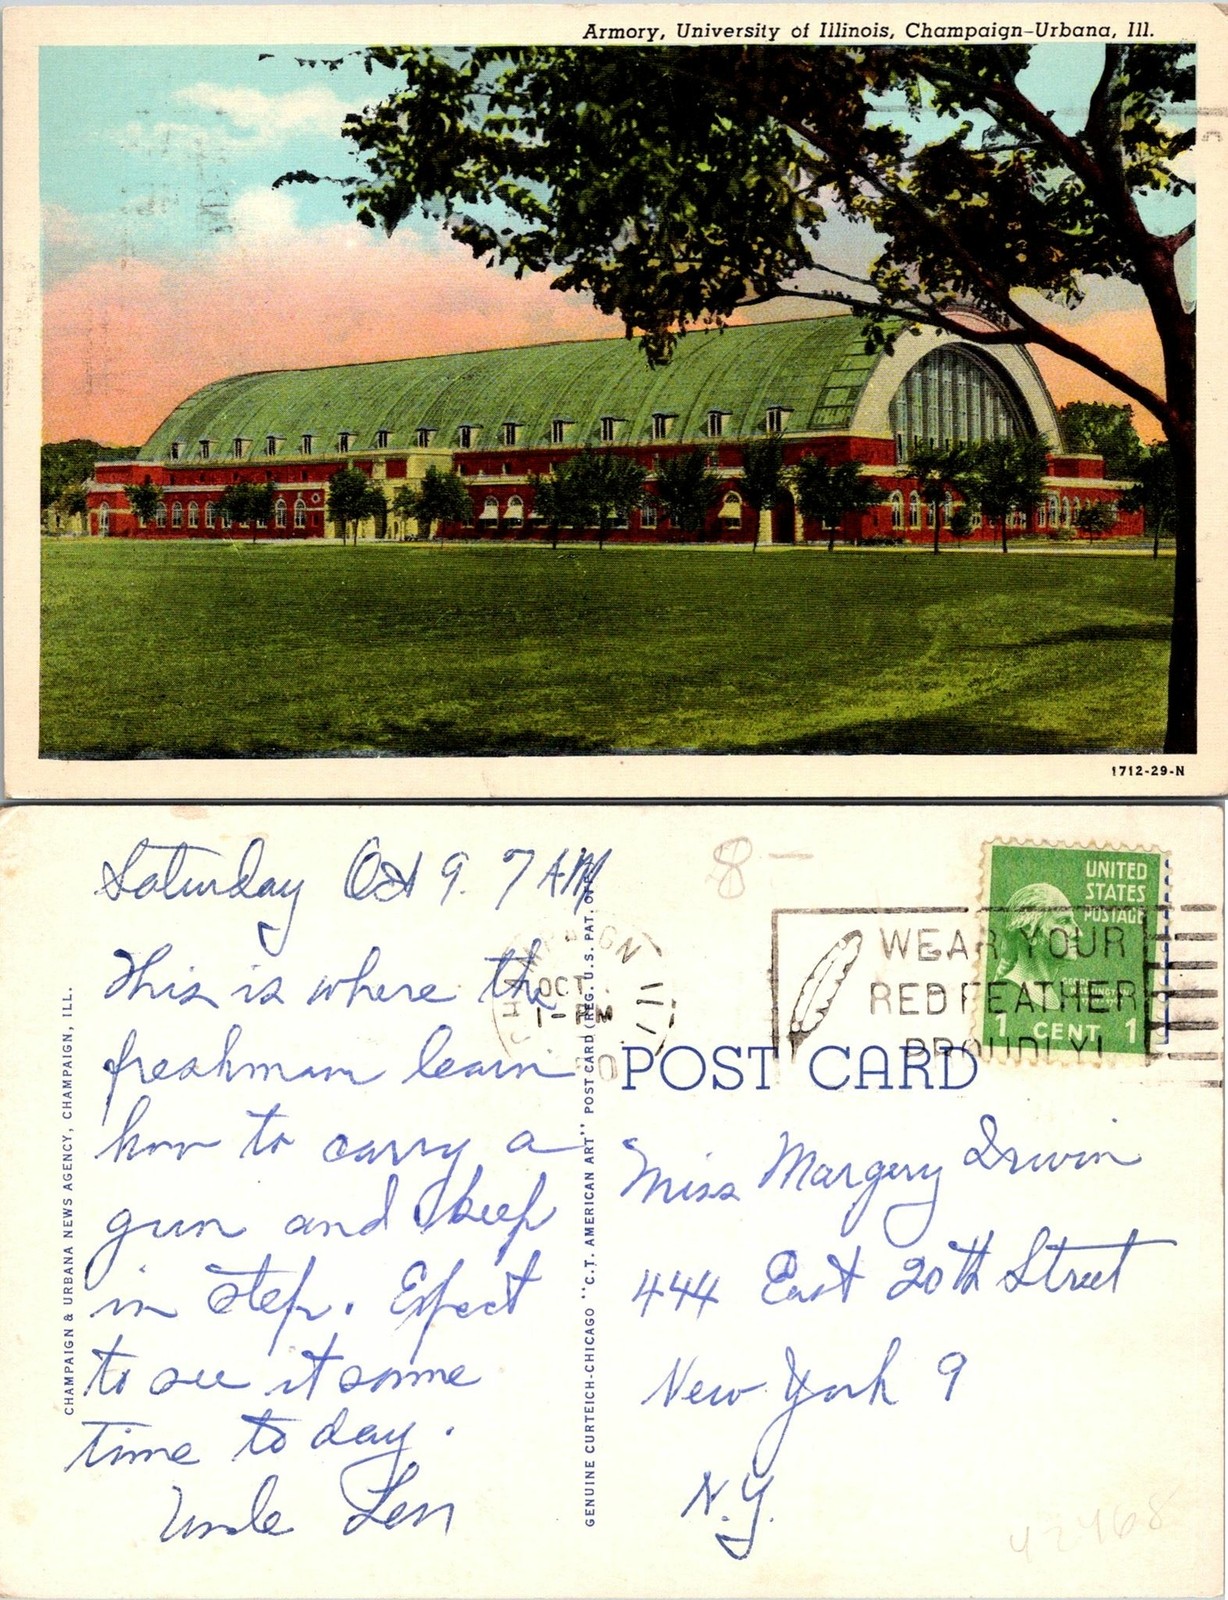 Armory, University of Illinois, Champaign-Urbana, Ill.
1712-29-N
Saturday Oct 9. 7 AM
This is where the
freshman learn
how to carry a
gun and keep
in step. Expect
to see it some
time today.
Uncle Len
CHAMPAIGN & URBANA NEWS AGENCY, CHAMPAIGN, ILL.
GENUINE CURTEICH-CHICAGO "C.T. AMERICAN ART" POST CARD (REG. U.S. PAT. OFF.)
8-
CHAMPAIGN
OCT
1-PM
WEAR YOUR
RED FEATHER
PROUDLY!
UNITED
STATES
POSTAGE
GEORGE
WASHINGTON
1 CENT 1
POST CARD
Miss Margery Irwin
444 East 20th Street
New York 9
N.Y.
42468